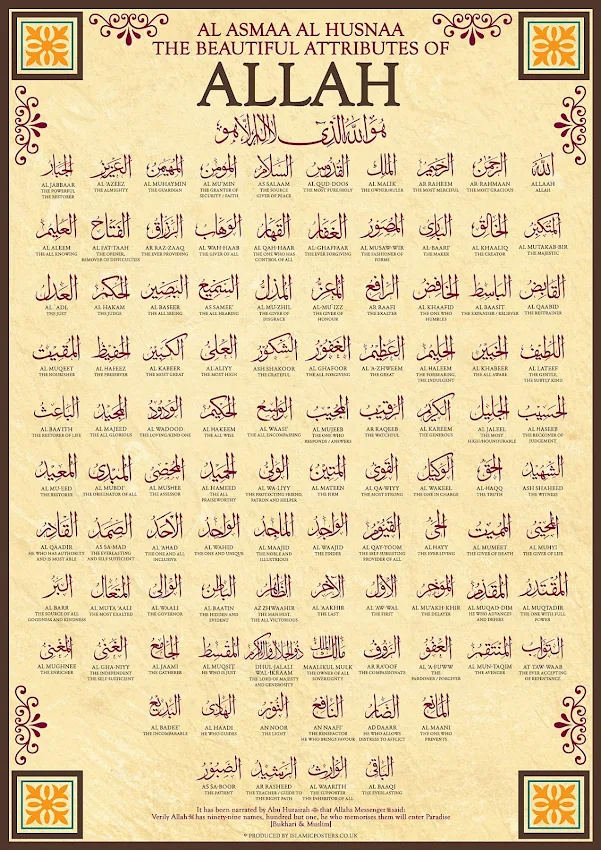 AL ASMAA AL HUSNAA
THE BEAUTIFUL ATTRIBUTES OF
ALLAH
هو الله الذي لا إله إلا هو
الله
ALLAAH
ALLAH
الرحمن
AR-RAHMAAN
THE MOST GRACIOUS
الرحيم
AR RAHEEM
THE MOST MERCIFUL
الملك
AL MALIK
THE OWNER/RULER
القدوس
AL QUD-DOOS
THE MOST PURE/HOLY
السلام
AS SALAAM
THE SOURCE
GIVER OF PEACE
المؤمن
AL MU'MIN
THE GRANTER OF
SECURITY / FAITH
المهيمن
AL MUHAYMIN
THE GUARDIAN
العزيز
AL 'AZEEZ
THE ALMIGHTY
الجبار
AL JABBAAR
THE POWERFUL
THE RESTORER
المتكبر
AL MUTAKAB-BIR
THE MAJESTIC
الخالق
AL KHAALIQ
THE CREATOR
البارئ
AL BAARI'
THE MAKER
المصور
AL MUSAW-WIR
THE FASHIONER OF
FORMS
الغفار
AL-GHAFFAAR
THE EVER FORGIVING
القهار
AL QAH-HAAR
THE ONE WHO HAS
CONTROL OF ALL
الوهاب
AL WAH-HAAB
THE GIVER OF ALL
الرزاق
AR RAZ-ZAAQ
THE EVER PROVIDING
الفتاح
AL FAT-TAAH
THE OPENER,
REMOVER OF DIFFICULTIES
العليم
AL ALEEM
THE ALL KNOWING
القابض
AL QAABID
THE RESTRAINER
الباسط
AL BAASIT
THE EXPANDER / RELIEVER
الخافض
AL KHAAFID
THE ONE WHO
HUMBLES
الرافع
AR RAAFI
THE EXALTER
المعز
AL-MU'IZZ
THE GIVER OF
HONOUR
المذل
AL MU-ZHIL
THE GIVER OF
DISGRACE
السميع
AS SAMEE'
THE ALL HEARING
البصير
AL BASEER
THE ALL SEEING
الحكم
AL HAKAM
THE JUDGE
العدل
AL 'ADL
THE JUST
اللطيف
AL LATEEF
THE GENTLE,
THE SUBTLY KIND
الخبير
AL KHABEER
THE ALL AWARE
الحليم
AL HALEEM
THE FORBEARING,
THE INDULGENT
العظيم
AL 'A-ZHWEEM
THE GREAT
الغفور
AL GHAFOOR
THE ALL FORGIVING
الشكور
ASH SHAKOOR
THE GRATEFUL
العلي
AL ALIYY
THE MOST HIGH
الكبير
AL KABEER
THE MOST GREAT
الحفيظ
AL HAFEEZ
THE PRESERVER
المقيت
AL MUQEET
THE NOURISHER
الحسيب
AL HASEEB
THE RECKONER OF
JUDGEMENT
الجليل
AL JALEEL
THE MOST
HIGH/HONOURABLE
الكريم
AL KAREEM
THE GENEROUS
الرقيب
AR RAQEEB
THE WATCHFUL
المجيب
AL MUJEEB
THE ONE WHO
RESPONDS / ANSWERS
الواسع
AL WAASI'
THE ALL ENCOMPASSING
الحكيم
AL HAKEEM
THE ALL WISE
الودود
AL WADOOD
THE LOVING/KIND ONE
المجيد
AL MAJEED
THE ALL GLORIOUS
الباعث
AL BAA'ITH
THE RESTORER OF LIFE
الشهيد
ASH SHAHEED
THE WITNESS
الحق
AL-HAQQ
THE TRUTH
الوكيل
AL WAKEEL
THE ONE IN CHARGE
القوي
AL QA-WIYY
THE MOST STRONG
المتين
AL MATEEN
THE FIRM
الولي
AL WA-LIYY
THE PROTECTING FRIEND,
PATRON AND HELPER
الحميد
AL HAMEED
THE ALL
PRAISEWORTHY
المحصي
AL MUSHEE
THE ASSESSOR
المبدئ
AL MUBDI'
THE ORIGINATOR OF ALL
المعيد
AL MU-EED
THE RESTORER
المحيي
AL MUHYI
THE GIVER OF LIFE
المميت
AL MUMEET
THE GIVER OF DEATH
الحي
AL HAYY
THE EVER LIVING
القيوم
AL QAY-YOOM
THE SELF SUBSISTING
PROVIDER OF ALL
الواجد
AL WAAJID
THE FINDER
الماجد
AL MAAJID
THE NOBLE AND
ILLUSTRIOUS
الواحد
AL WAHID
THE ONE AND UNIQUE
الأحد
AL 'AHAD
THE ONE AND ALL
INCLUSIVE
الصمد
AS SA-MAD
THE EVERLASTING
AND SELF SUFFICIENT
القادر
AL QAADIR
HE WHO HAS AUTHORITY
AND IS MOST ABLE
المقتدر
AL MUQTADIR
THE ONE WITH FULL
POWER
المقدم
AL MUQAD-DIM
HE WHO ADVANCES
AND DEFERS
المؤخر
AL MU'AKH-KHIR
THE DELAYER
الأول
AL 'AW-WAL
THE FIRST
الآخر
AL 'AAKHIR
THE LAST
الظاهر
AZ ZHWAAHIR
THE MANIFEST,
THE ALL VICTORIOUS
الباطن
AL BAATIN
THE HIDDEN AND
EVIDENT
الوالي
AL WAALI
THE GOVERNOR
المتعال
AL MUTA 'AALI
THE MOST EXALTED
البر
AL BARR
THE SOURCE OF ALL
GOODNESS AND KINDNESS
التواب
AT TAW-WAAB
THE EVER ACCEPTING
OF REPENTANCE.
المنتقم
AL MUN-TAQIM
THE AVENGER
العفو
AL 'A-FUWW
THE
PARDONER / FORGIVER
الرءوف
AR RA'OOF
THE COMPASSIONATE
مالك الملك
MAALIKUL MULK
THE OWNER OF ALL
SOVEREIGNTY
ذو الجلال والإكرام
DHUL JALALI
WAL-IKRAAM
THE LORD OF MAJESTY
AND GENEROSITY
المقسط
AL MUQSIT
HE WHO IS JUST
الجامع
AL JAAMI
THE GATHERER
الغني
AL GHA-NIYY
THE INDEPENDENT
THE SELF-SUFFICIENT
المغني
AL MUGHNEE
THE ENRICHER
المانع
AL MAANI
THE ONE WHO
PREVENTS.
الضار
AD DAARR
HE WHO ALLOWS
DISTRESS TO AFFLICT
النافع
AN NAAFI'
THE BENEFACTOR
HE WHO BRINGS FAVOUR
النور
AN NOOR
THE LIGHT
الهادي
AL HAADI
HE WHO GUIDES
البديع
AL BADEE'
THE INCOMPARABLE
الباقي
AL BAAQI
THE EVERLASTING
الوارث
AL WAARITH
THE SUPPORTER
THE INHERITOR OF ALL
الرشيد
AR RASHEED
THE TEACHER / GUIDE TO
THE RIGHT PATH
الصبور
AS SA-BOOR
THE PATIENT
It has been narrated by Abu Hurairah that Allahs Messenger ﷺ said:
Verily Allah has ninety-nine names, hundred but one, he who memorises them will enter Paradise
[Bukhari & Muslim]
© PRODUCED BY ISLAMICPOSTERS.CO.UK